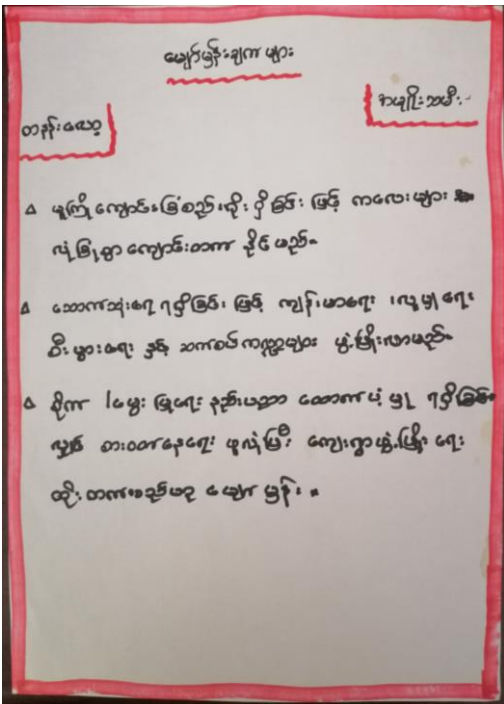 မျှော်မှန်းချက်များ
အမျိုးသမီး-
တနန်းလော့
မူကြိုကျောင်းခြံစည်းရိုး ရှိခြင်း ဖြင့် ကလေးများ
လုံခြုံစွာကျောင်းတက် နိုင်မည်။
သောက်သုံးရေရရှိခြင်း ဖြင့် ကျန်းမာရေး ၊လူမှုရေး
စီးပွားရေး နှင့် ဆက်စပ်ကဏ္ဍများ ဖွံ့ဖြိုးလာမည်။
စိုက် ၊မွေး မြူရေး နည်းပညာ ထောက်ပံ့မှု ရရှိခြင်း
စားဝတ်နေရေး ဖူလုံပြီး ကျေးရွာဖွံ့ဖြိုးရေး
တိုးတက်မည်ဟု မျှော်မှန်း။